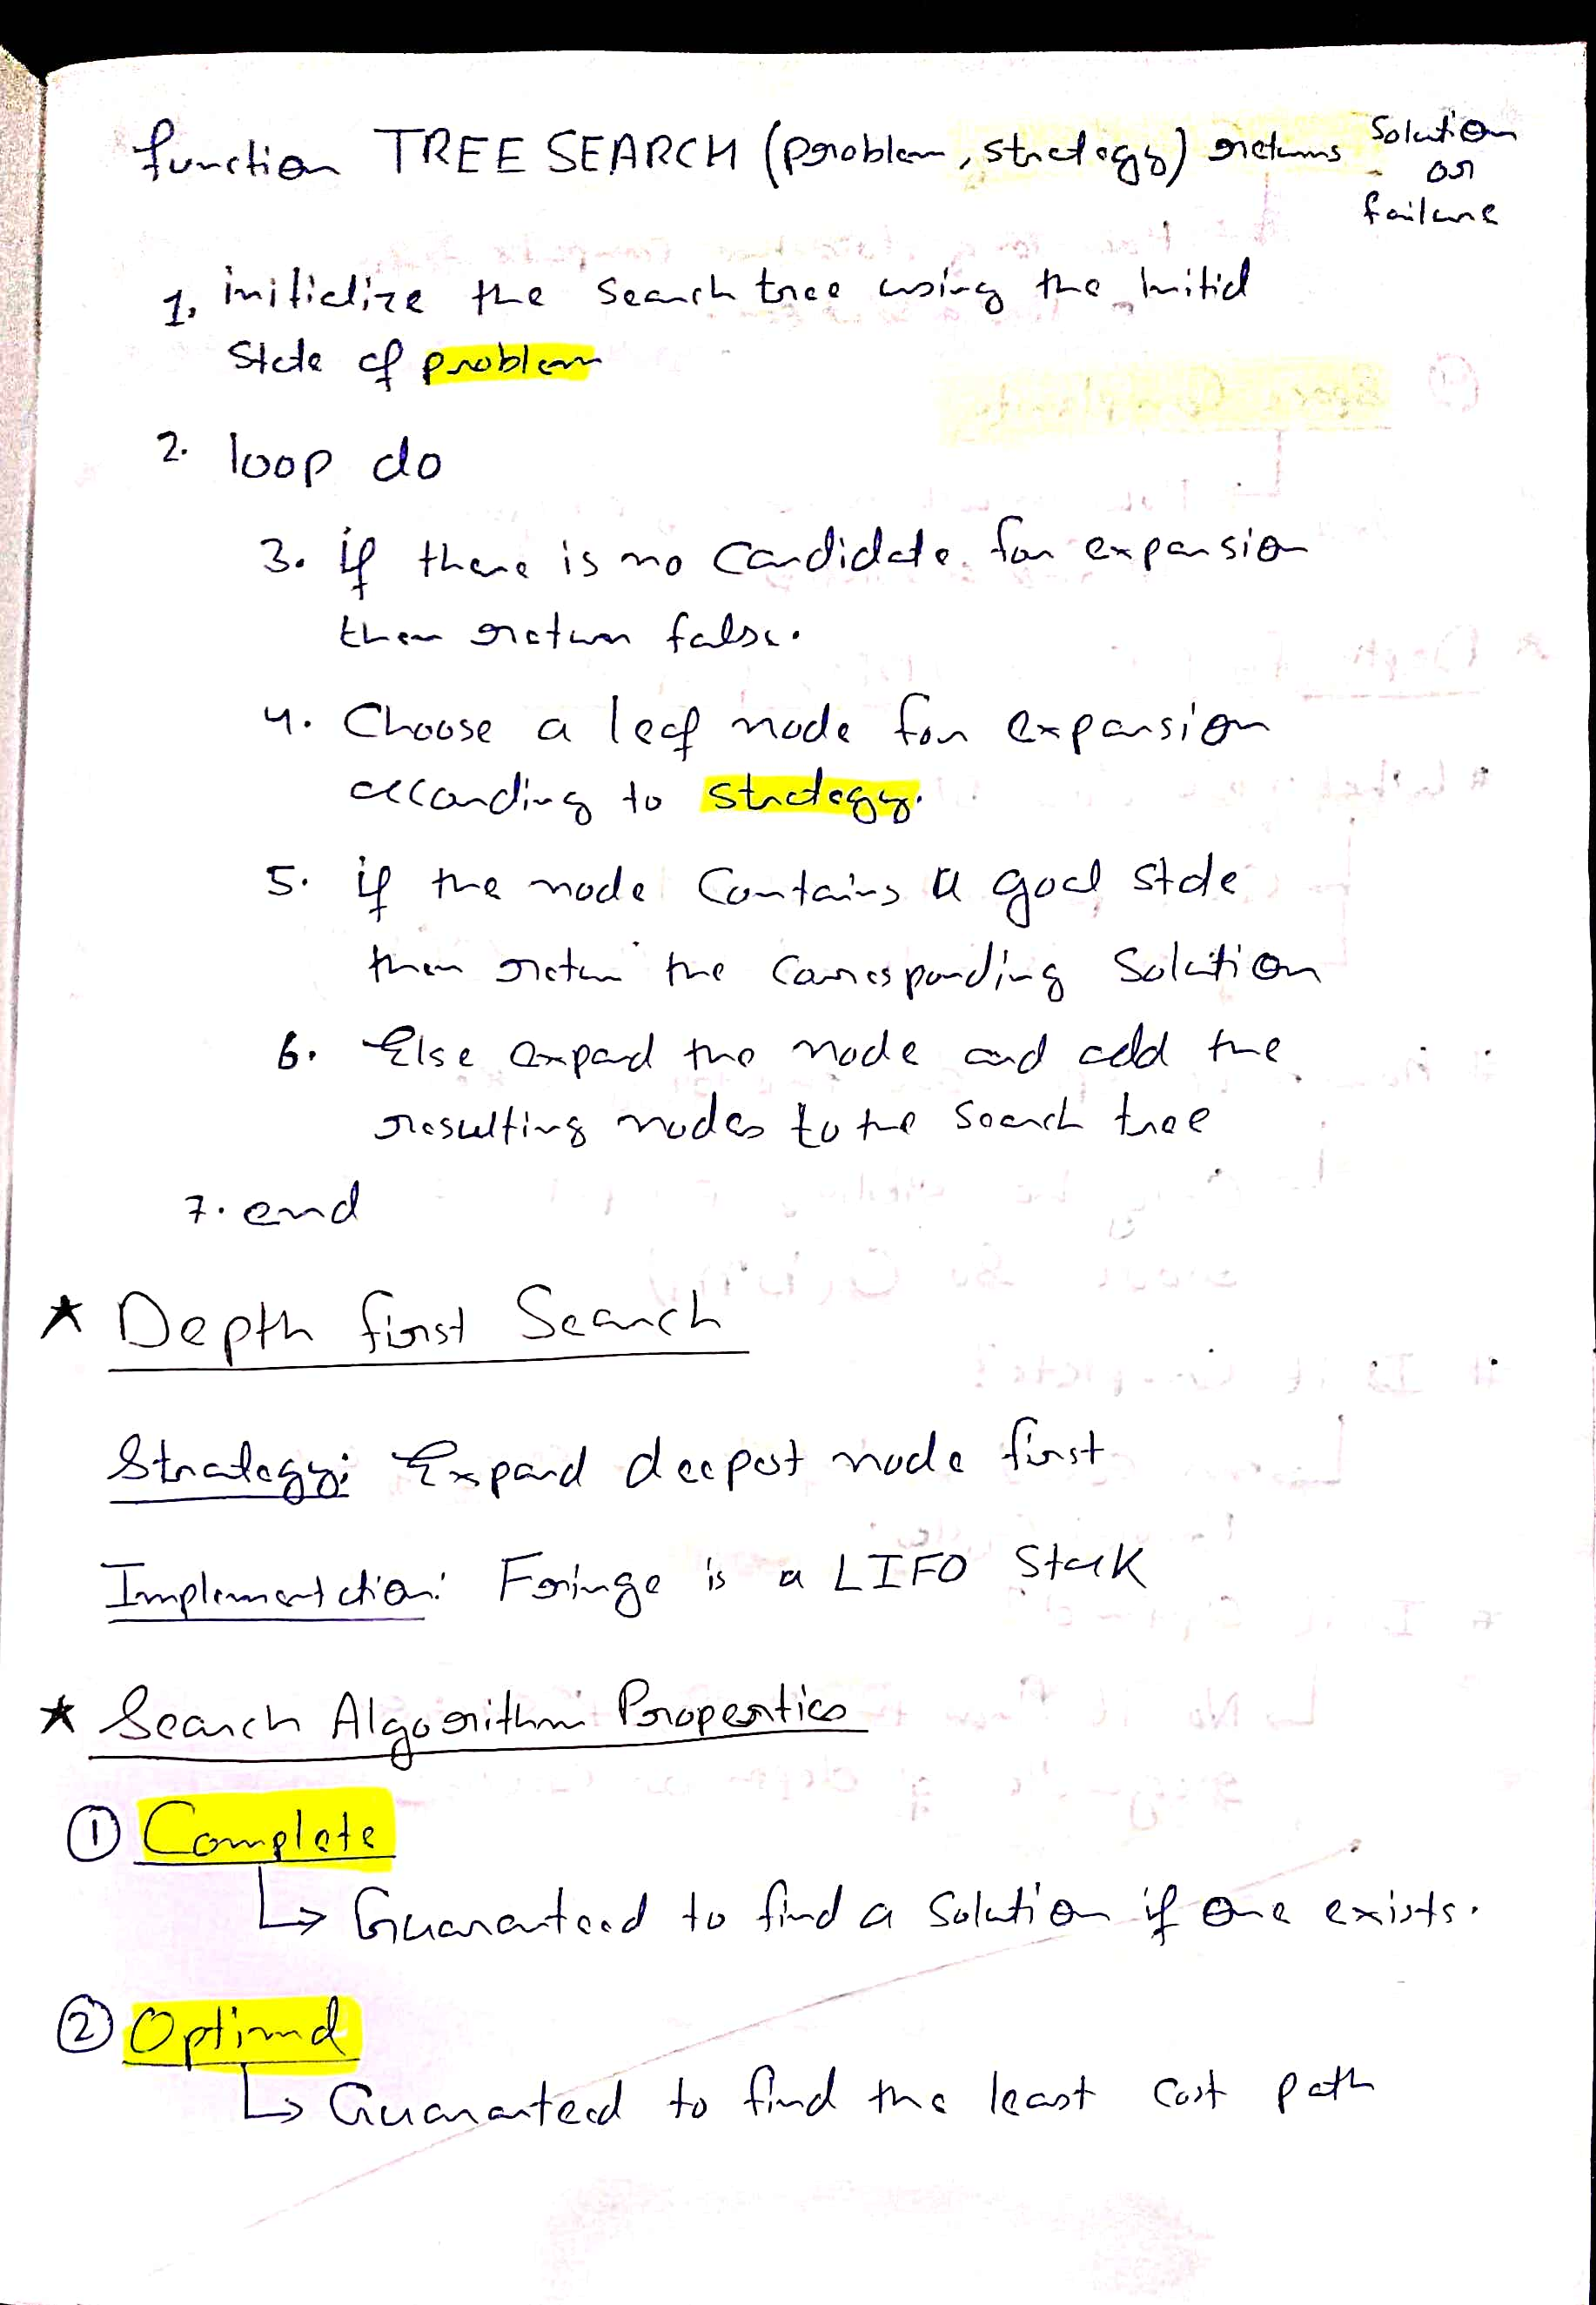 function TREE SEARCH (problem, strategy) returns solution or failure
1. initialize the search tree using the initial
state of problem
2. loop do
3. if there is no candidate for expansion
then return false.
4. Choose a leaf node for expansion
according to strategy.
5. if the node contains a goal state
then return the corresponding solution
6. Else expand the node and add the
resulting nodes to the search tree
7. end
* Depth first Search
Strategy: Expand deepest node first
Implementation: Fringe is a LIFO stack
* Search Algorithm Properties
① Complete
↳ Guaranteed to find a solution if one exists.
② Optimal
↳ Guaranteed to find the least cost path